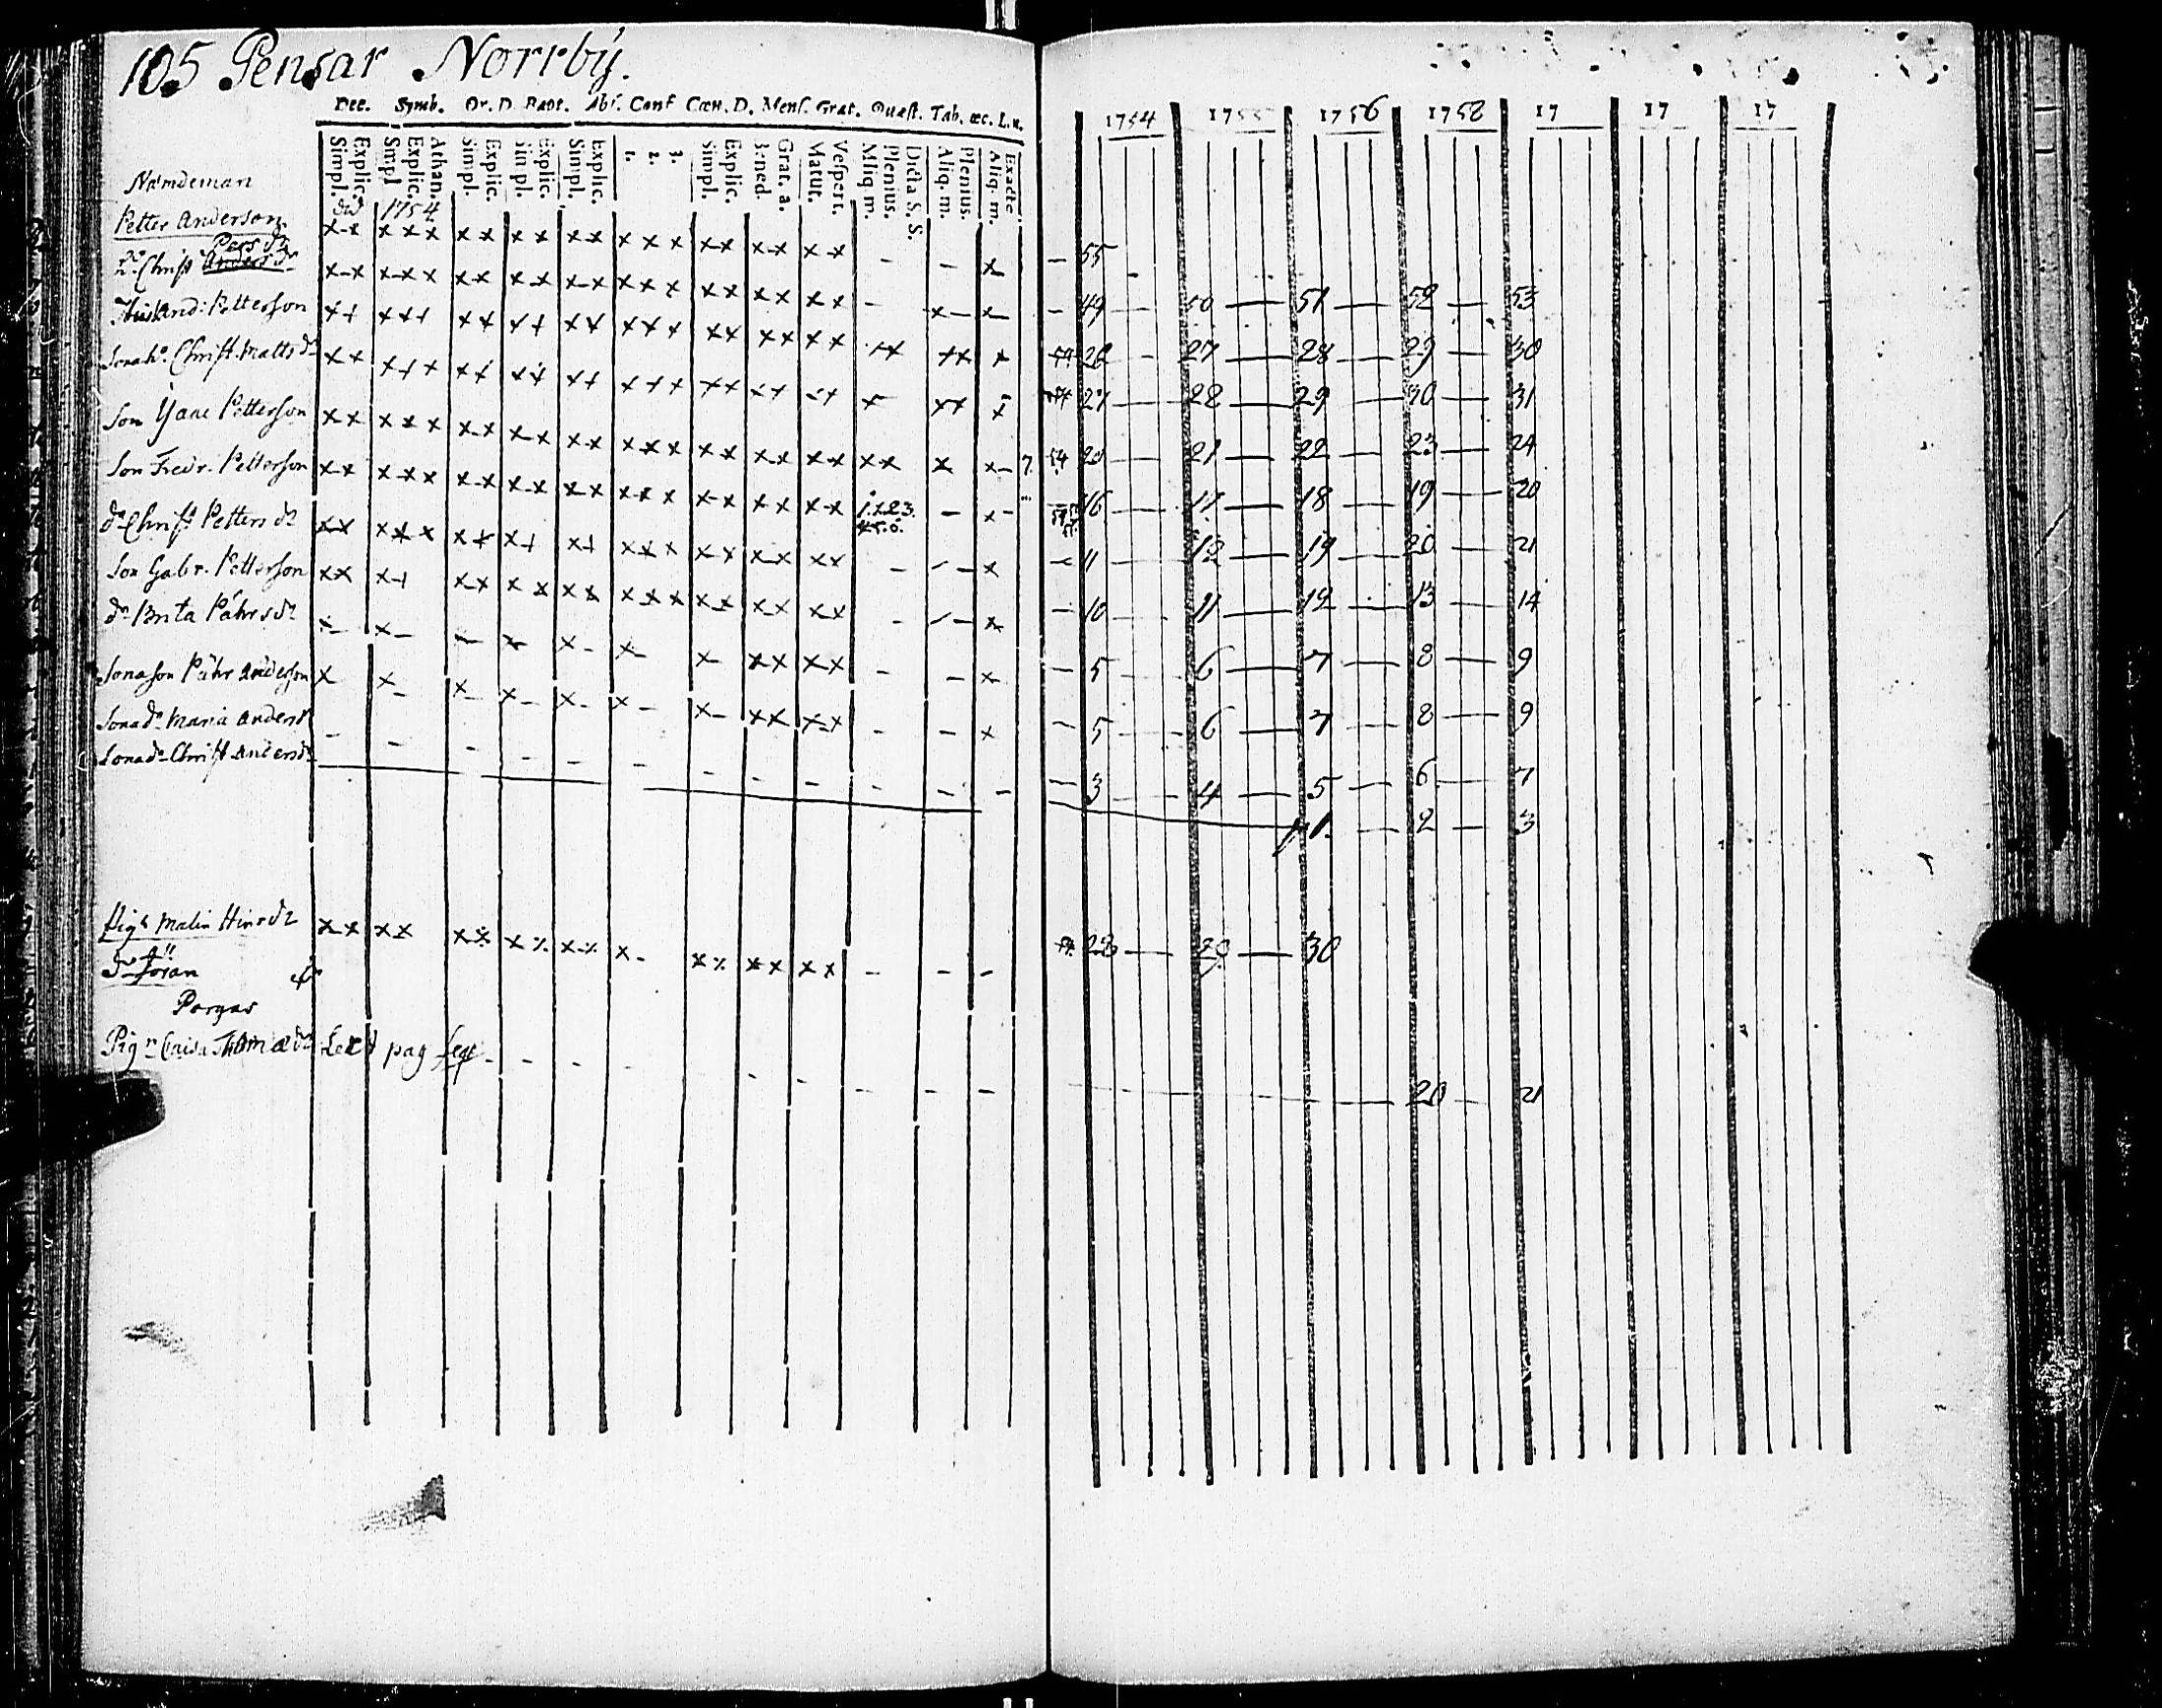 105 Pensar Norrby.
Dec. Symb. Or. D. Bapt. Abs. Conf Cœn. D. Mens. Grat. Quæst. Tab. œc. L. n.
Simpl. Explic. Simpl Explic. Athan. Simpl. Explic. Simpl. Explic. Simpl. Explic. 1. 2. 3. Simpl. Explic. Bened. Grat. a. Matut. Vespert. Aliq m. Plenius. Dicta S. S. Aliq. m. Plenius. Aliq. m. Exacte
1754 1755 1756 1758 17 17 17
Nämdeman
Petter Anderson död 1754 55
Pers dr
h. Christ Anders dr 49 50 51 52 53
And: Petterson 26 27 28 29 30
Sonah. Christ. Matts dr 27 28 29 30 31
Son Petterson 7. 54 20 21 22 23 24
Son Fredr. Petterson 1.2.3. 4.5.6. 16 17 18 19 20
dr Christ Petters dr 11 12 19 20 21
Son Gabr. Petterson 10 11 12 13 14
dr Brita Pährs dr 5 6 7 8 9
Sonason Pähr Anderson 5 6 7 8 9
Sonadr Maria Anders 3 4 5 6 7
Sonadr Christ Anders dr 1. 2 3
Pig. Malin Hinr dr 28 29 30
Pargas
Pig Caisa Thomæ dr pag 20 21